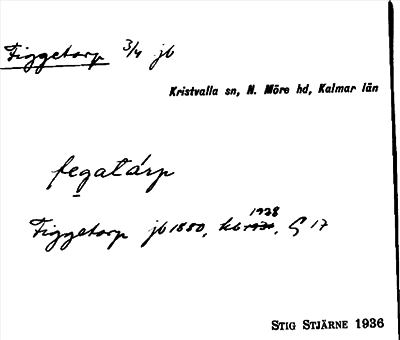 Figgetorp 3/4 jb
Kristvalla sn, N. Möre hd, Kalmar län
fegatárp
1928
Figgetorp jb 1880, kb, G 17
STIG STJÄRNE 1936